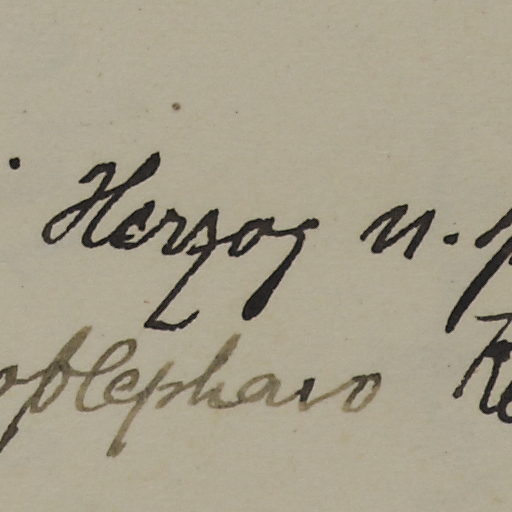 Herzog n.
oblepharo